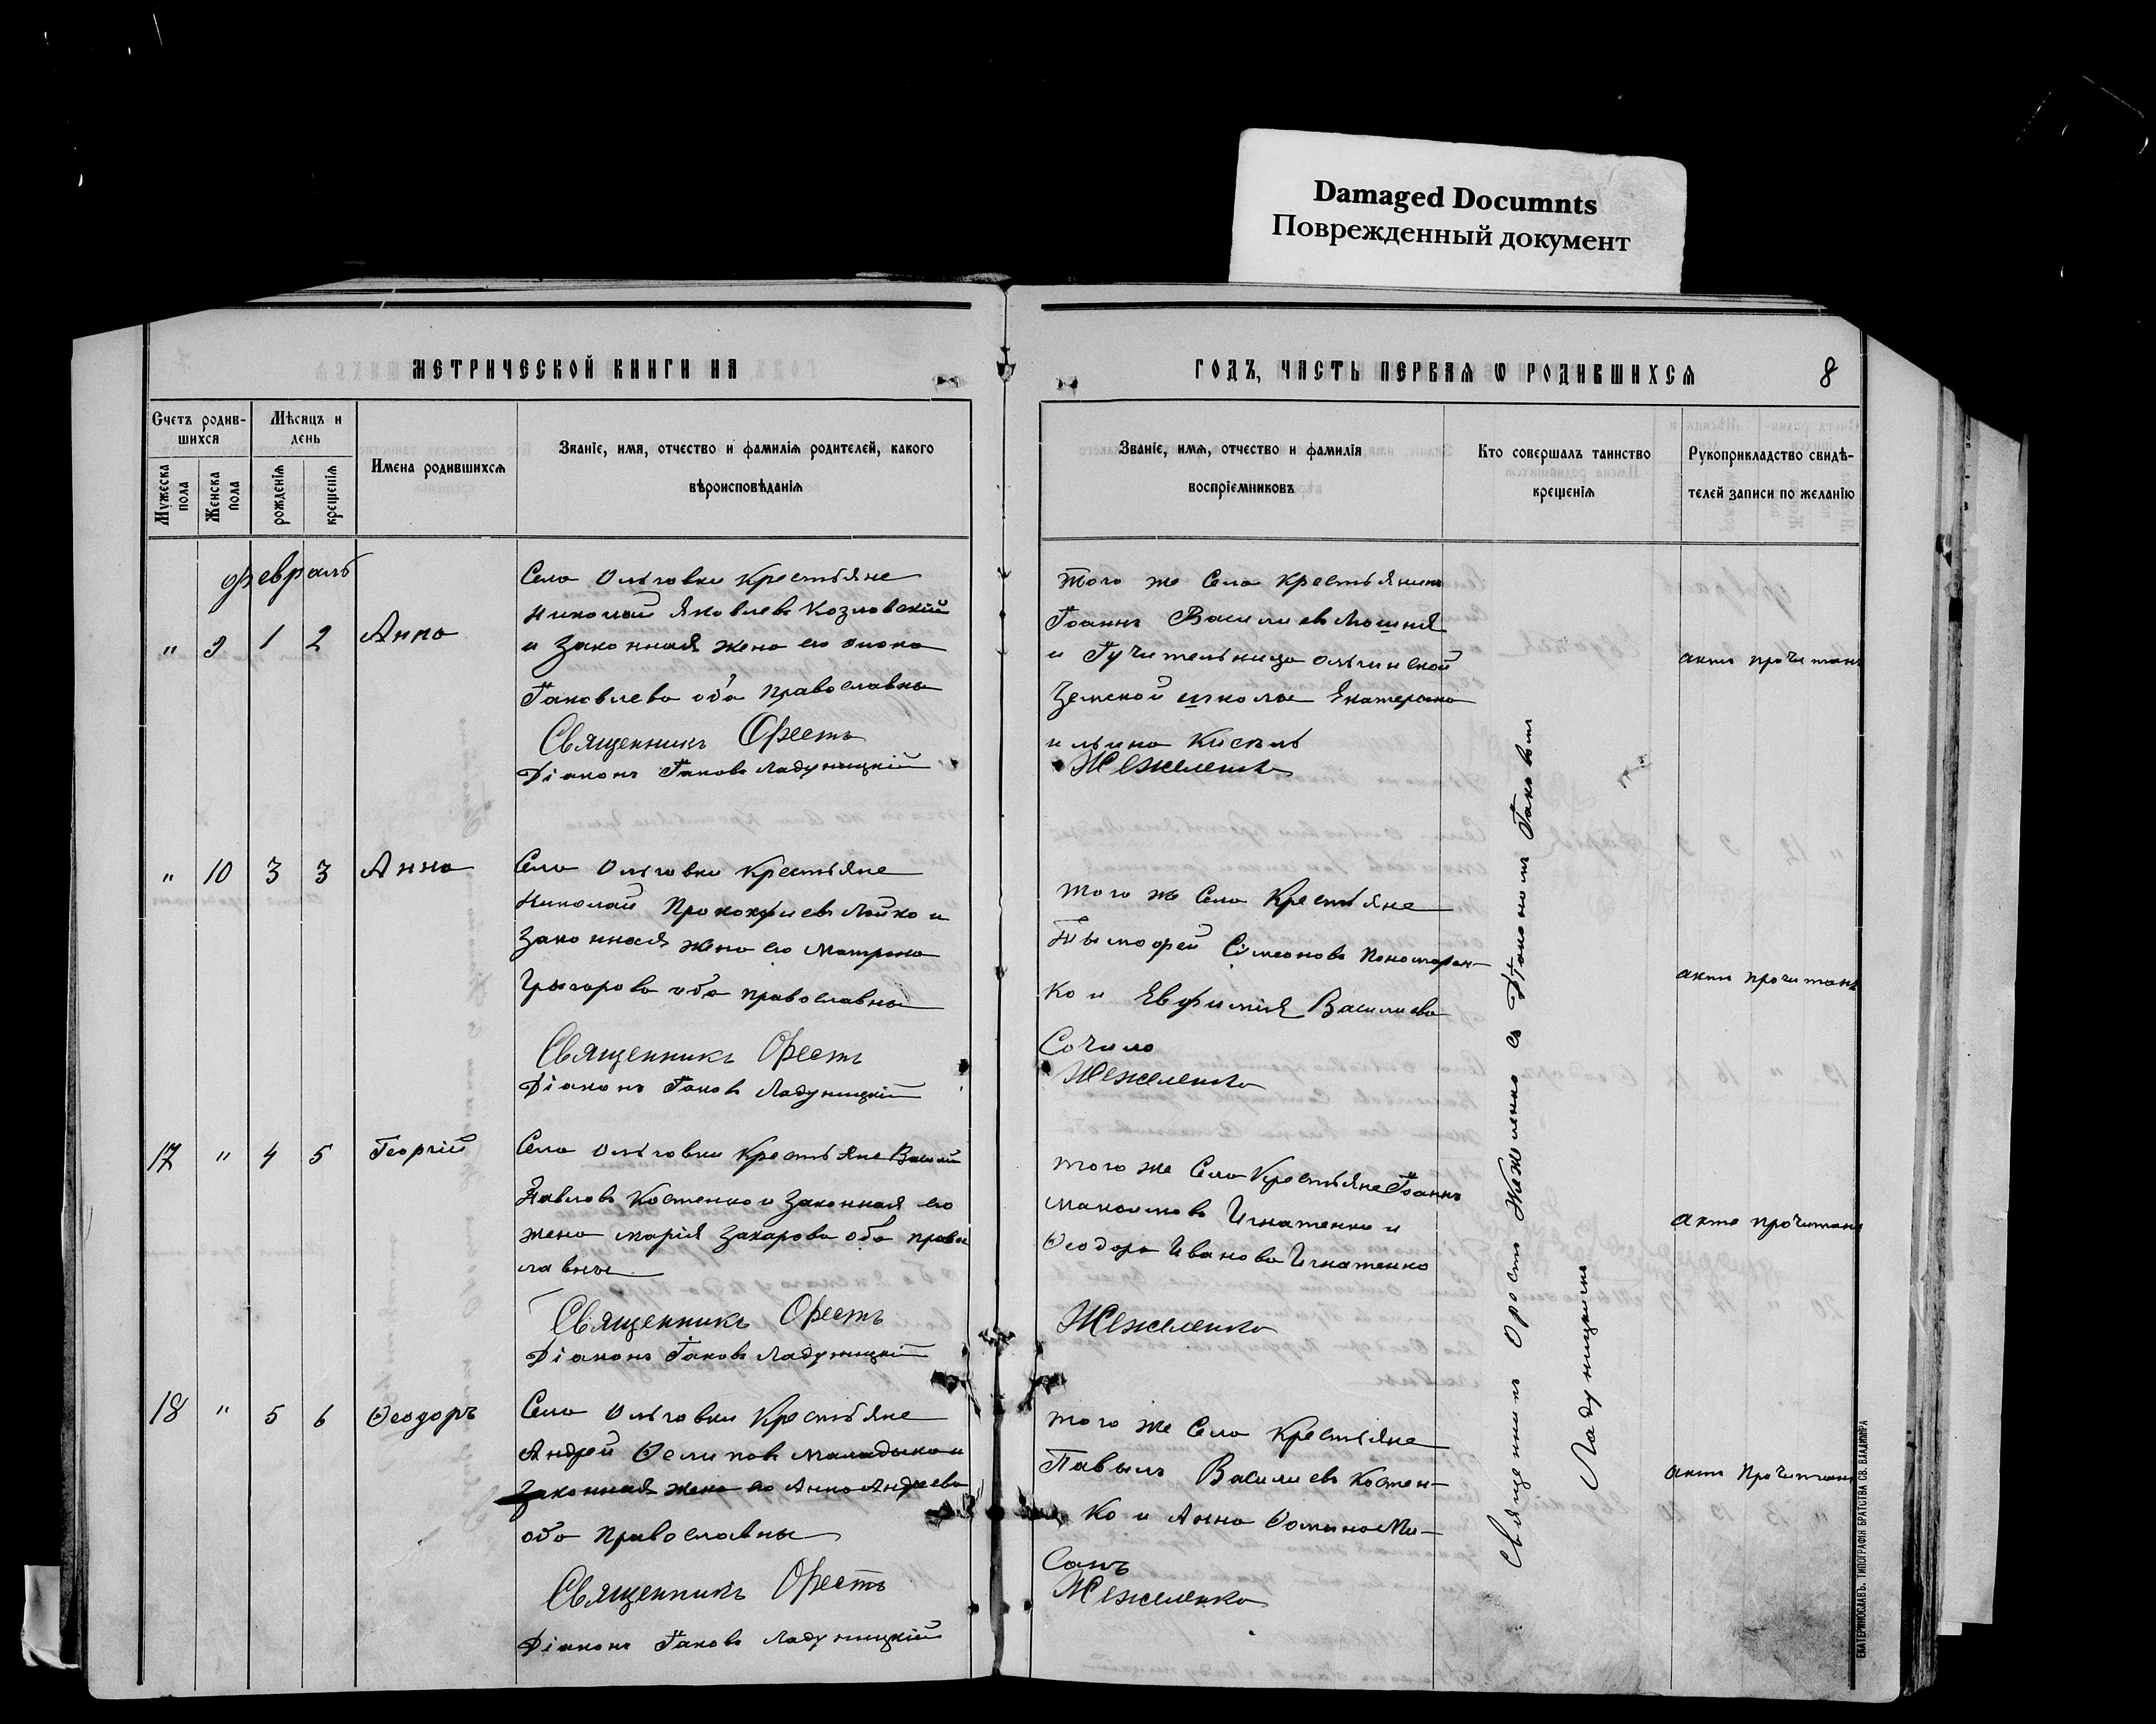 Damaged Documnts
Поврежденный документ
МЕТРИЧЕСКОЙ КНИГИ НА
ГОДЪ, ЧАСТЬ ПЕРВАЯ Ѡ РОДИВШИХСЯ
8
Счетъ родив-
шихся
Мѣсяцъ и
день
Мужеска
пола
Женска
пола
рожденія
крещенія
Имена родившихся
Званіе, имя, отчество и фамилія родителей, какого
вѣроисповѣданія
Званіе, имя, отчество и фамилія
воспріемниковъ
Кто совершалъ таинство
крещенія
Рукоприкладство свидѣ-
телей записи по желанію
февраль
" 9 1 2 Анна
Села Ольговки Крестьяне
Николай Яковлевъ Козловскій
и Законная жена его
Іаковлева оба православны
Священникъ Орестъ
Діаконъ Іаковъ Ладуницкій
того же Села Крестьянинъ
Іоаннъ Василиевъ Мошня
и учительница
Земской школы Екатерина
Кисель
Жежеленко
актъ прочитанъ
" 10 3 3 Анна
Села Ольговки Крестьяне
Николай Прокофиевъ Лойко и
Законная жена его Матрона
Григорова оба православны
Священникъ Орестъ
Діаконъ Іаковъ Ладуницкій
того же Села Крестьяне
Тымофей Сімеоновъ Пономарен-
ко и Евфимія Василиева
Сочило
Жежеленко
актъ прочитанъ
17 " 4 5 Георгій
Села Ольговки Крестьяне Василий
Павловъ Костенко и Законная его
жена Марія Захарова оба правос
лавны
Священникъ Орестъ
Діаконъ Іаковъ Ладуницкій
того же Села Крестьяне Іоаннъ
Максимовъ Игнатенко и
Ѳеодора Иванова Игнатенко
Жежеленко
актъ прочитанъ
18 " 5 6 Ѳеодоръ
Села Ольговки Крестьяне
Андрей Маладыка и
Законная жена его Анна Андреева
оба Православны
Священникъ Орестъ
Діаконъ Іаковъ Ладуницкій
того же Села Крестьяне
Павылъ Василиевъ Костен-
ко и Анна Фомина Ми-
Жежеленко
актъ Прочитанъ
Священникъ Орестъ Жежеленко съ Діакономъ Іаковомъ
Ладуницкимъ
ЕКАТЕРИНОСЛАВЪ. ТИПОГРАФІЯ БРАТСТВА СВ. ВЛАДИМІРА